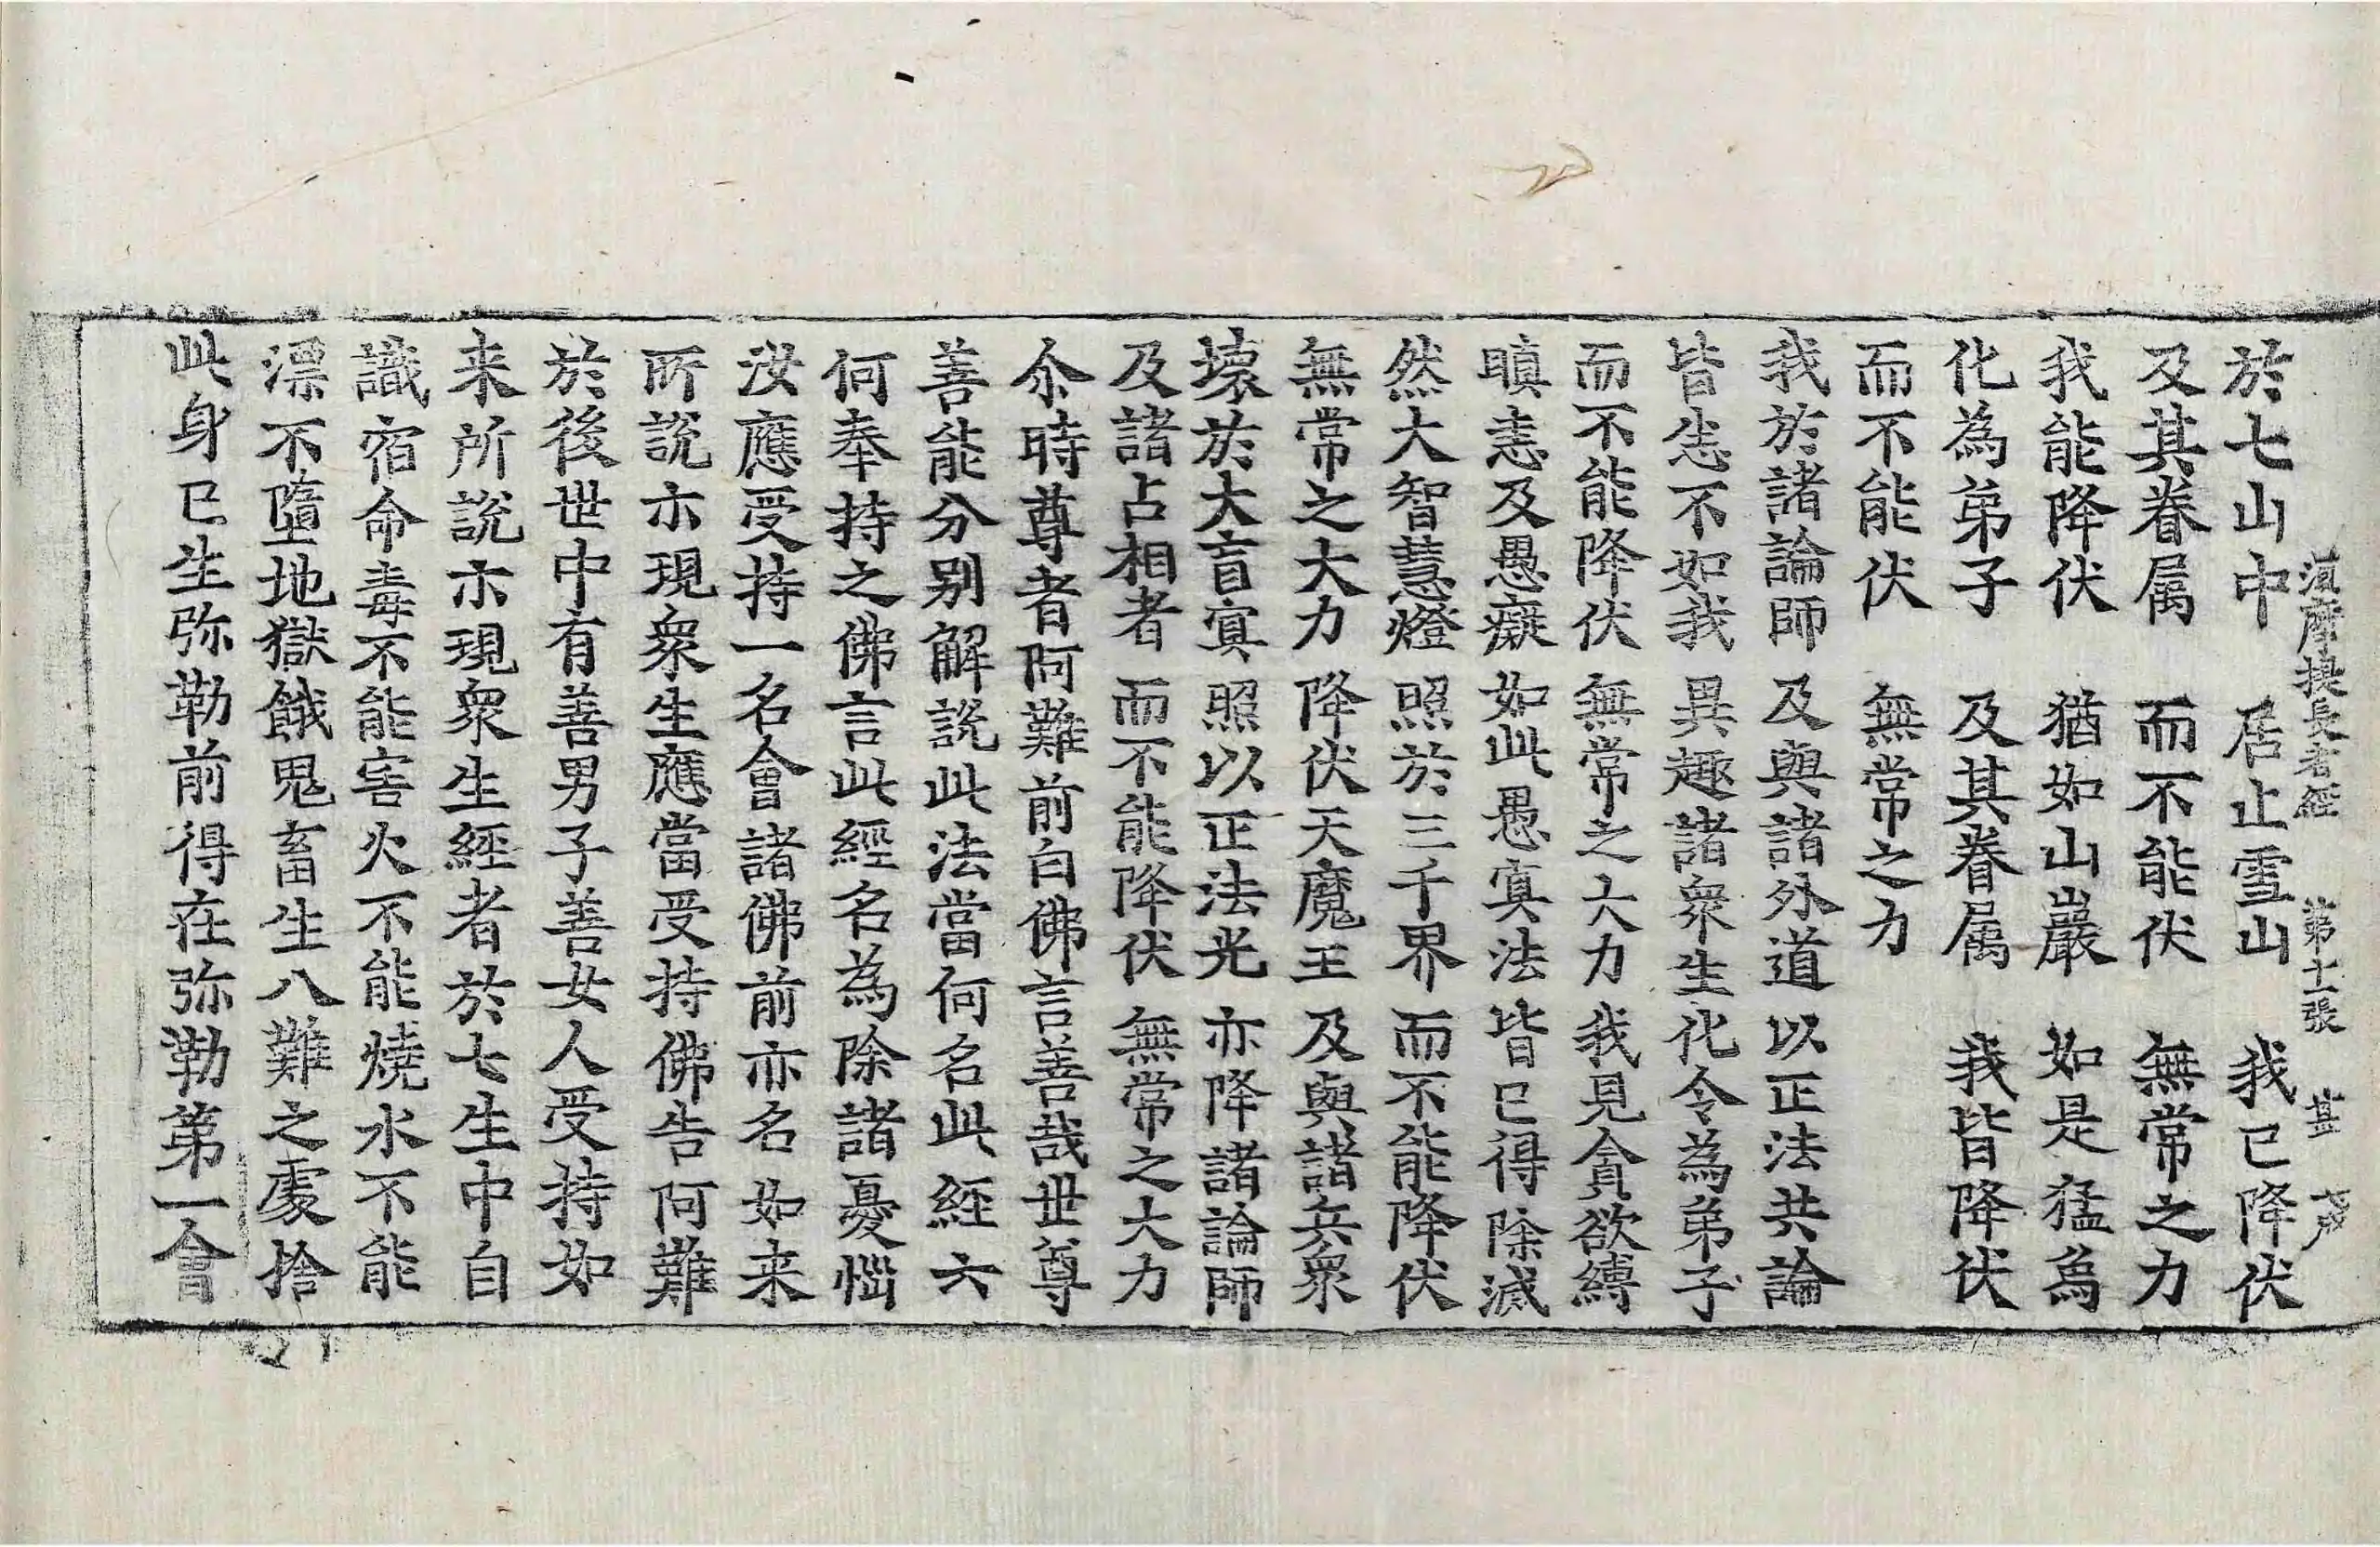 湏摩提長者經　第十一張　甚
於七山中　居止雪山　我已降伏
及其眷属　而不能伏　無常之力
我能降伏　猶如山巖　如是猛為
化為弟子　及其眷属　我皆降伏
而不能伏　無常之力
我於諸論師　及與諸外道　以正法共論
皆悉不如我　異趣諸衆生　化令為弟子
而不能降伏　無常之大力　我見貪欲縛
瞋恚及愚癡　如此愚寘法　皆已得除滅
然大智慧燈　照於三千界　而不能降伏
無常之大力　降伏天魔王　及與諸兵衆
壞於大盲寘　照以正法光　亦降諸論師
及諸占相者　而不能降伏　無常之大力
尒時尊者阿難前白佛言善哉世尊
善能分别解說此法當何名此經六
何奉持之佛言此經名為除諸憂惱
汝應受持一名會諸佛前亦名如来
所說示現衆生應當受持佛告阿難
於後世中有善男子善女人受持如
来所說示現衆生經者於七生中自
識宿命毒不能害火不能燒水不能
漂不墮地獄餓鬼畜生八難之處捨
此身已生弥勒前得在弥勒第一會